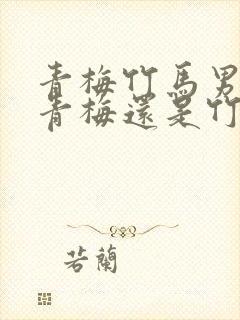 青梅竹馬男
青梅還是竹
若蘭